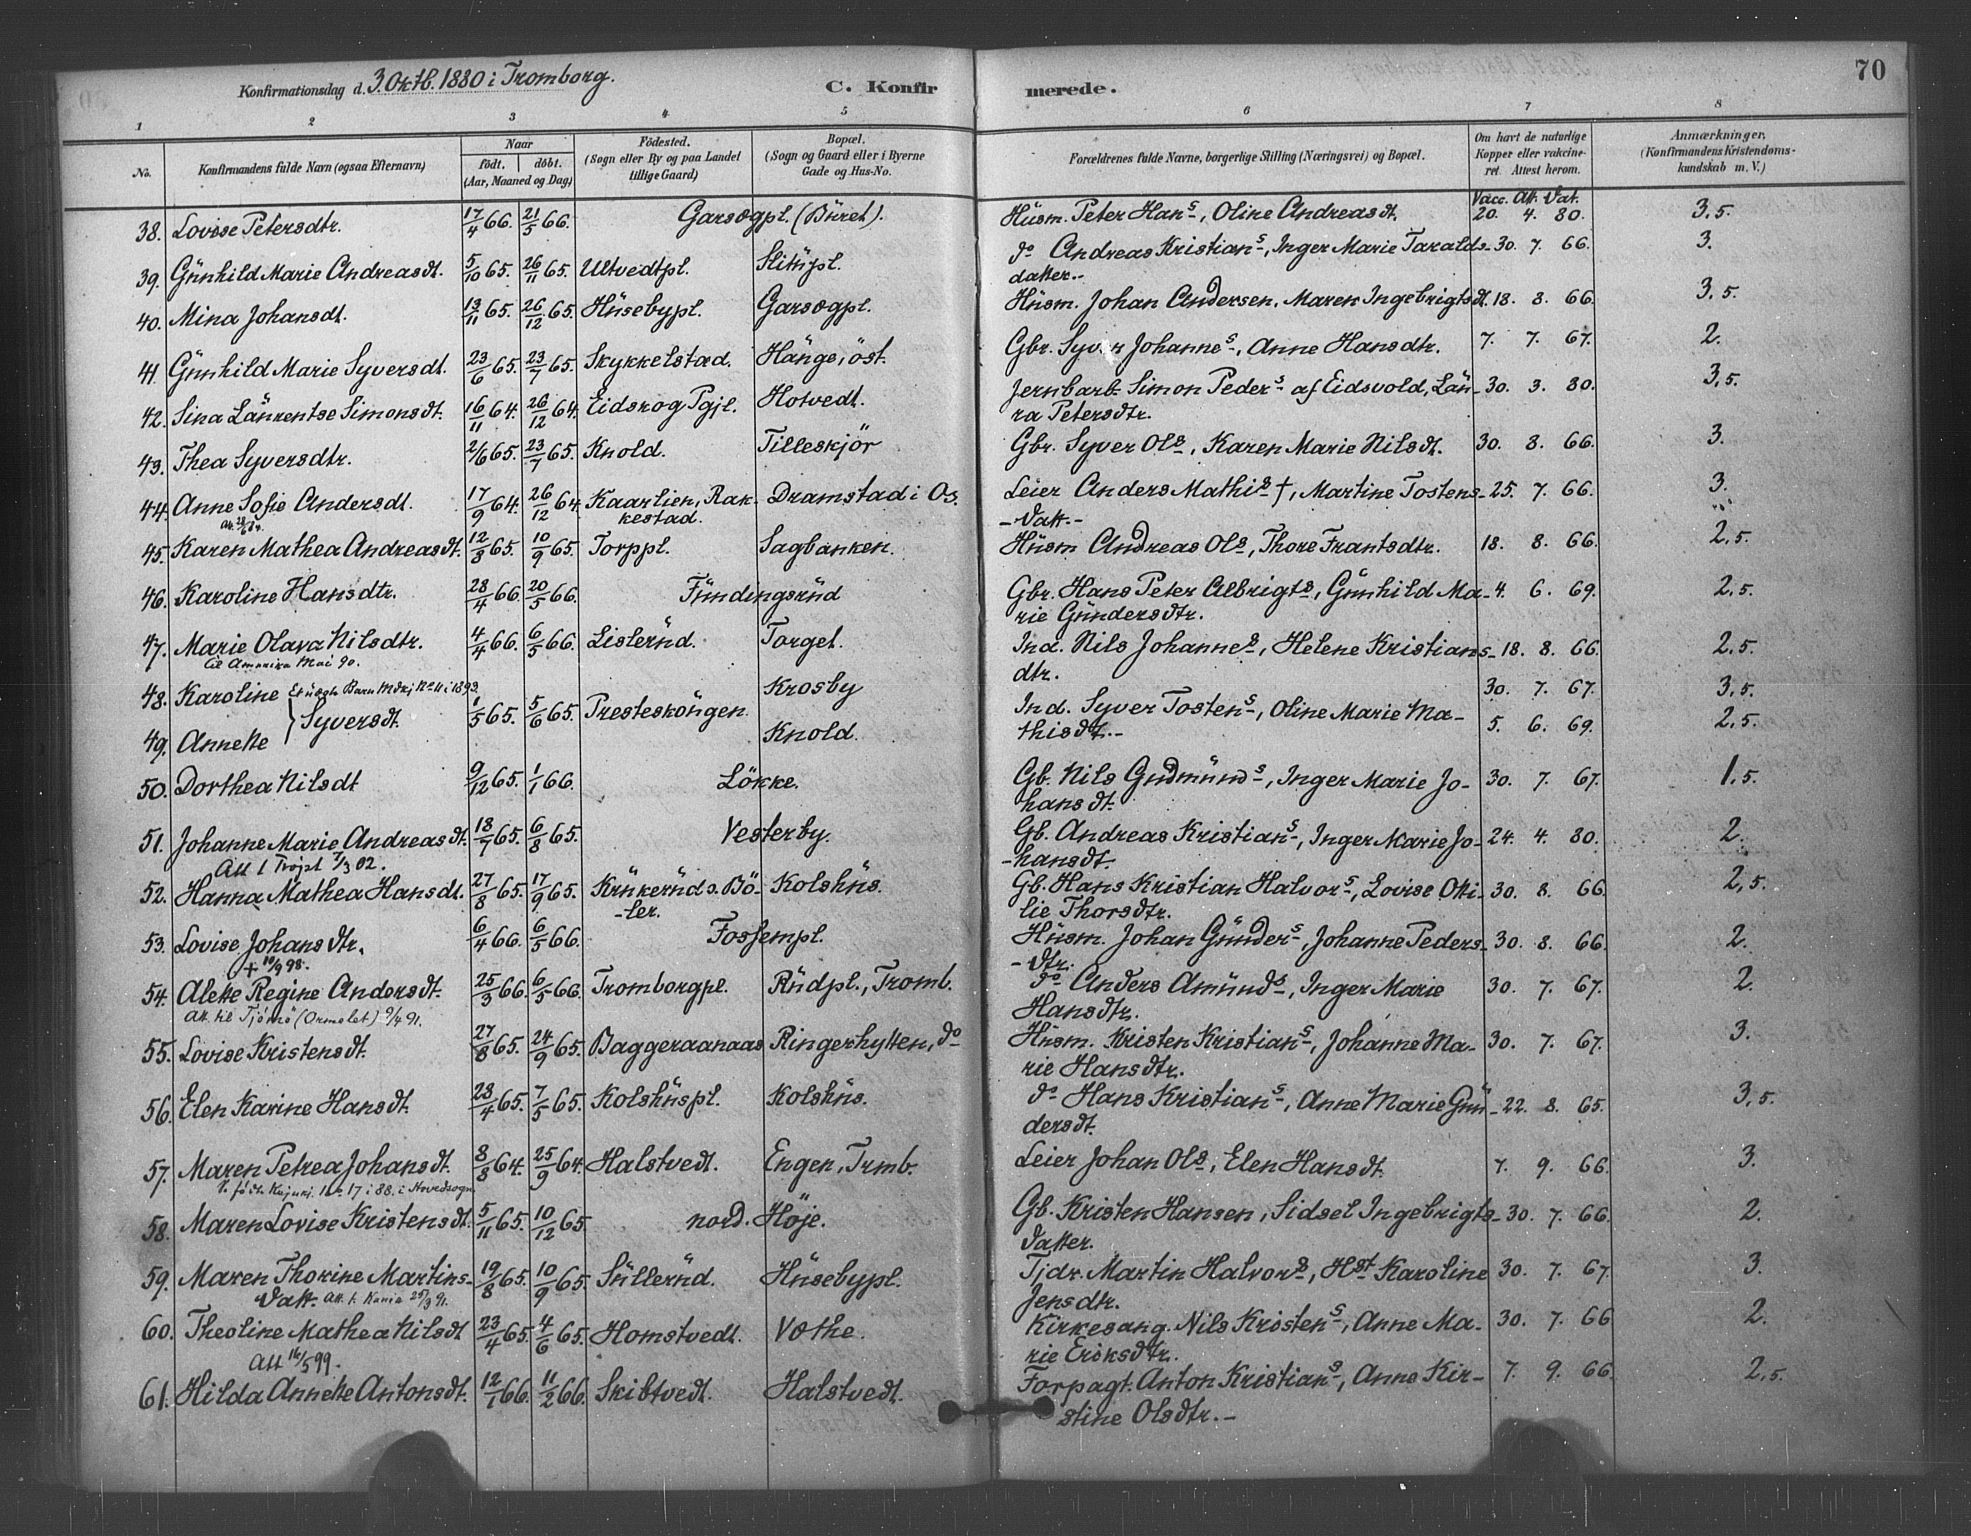 Konfirmationsdag d. 3. Oktb. 1880 i Tromborg. C. Konfirmerede. 70
1 2 3 4 5 6 7 8
No. Konfirmandens fulde Navn (ogsaa Efternavn) Naar født. døbt. (Aar, Maaned og Dag) Fødested. (Sogn eller By og paa Landet tillige Gaard) Bopæl. (Sogn og Gaard eller i Byerne Gade og Hus-No.) Forældrenes fulde Navne, borgerlige Stilling (Næringsvei) og Bopæl. Om havt de naturlige Kopper eller vakcineret. Attest herom. Anmærkninger. (Konfirmandens Kristendomskundskab m. V.)
Vacc. Att. Dat.
38. Lovise Petersdtr. 17/4 66. 21/5 66. Garsegpl. (Büret). Hüsm. Peter Hans, Oline Andreasdt. 20. 4. 80. 3,5.
39. Günhild Marie Andreasdt. 5/10 65. 26/11 65. Ultvedtpl. Slitüpl. do Andreas Kristians, Inger Marie Taralds- 30. 7. 66. 3.
datter.-
40. Mina Johansdt. 13/11 65. 26/12 65. Hüsebypl. Garsegpl. Hüsm. Johan Andersen, Maren Ingebrigtsdt. 18. 8. 66. 3,5.
41. Günhild Marie Syversdt. 23/6 65. 23/7 65. Skykkelstad. Hänge, öst. Gbr. Syver Johannes, Anne Hansdtr. 7. 7. 67. 2.
42. Sina Laürentse Simonsdt. 16/11 64. 26/12 64. Eidskog Pgjl. Hotvedt. Jernbarb. Simon Peders af Eidsvold, Laü- 30. 3. 80. 3,5.
ra Petersdtr.
43. Thea Syversdtr. 2/6 65. 23/7 65. Knold. Tilleskjör Gbr. Syver Ols, Karen Marie Nilsdt. 30. 8. 66. 3.
44. Anne Sofie Andersdt. 17/9 64. 26/12 64. Kaarlien, Rak- Dramstad i Os. Leier Anders Mathis †, Martine Tostens- 25. 7. 66. 3.
kestad. -datt.-
45. Karen Mathea Andreasdt. 12/8 65. 10/9 65. Torppl. Sagbanken. Hüsm Andreas Ols, Thore Frantsdtr. 18. 8. 66. 2,5.
46. Karoline Hansdtr. 28/4 66. 20/5 66. Fündingsrüd Gbr. Hans Peter Albrigts, Günhild Ma- 4. 6. 69. 2,5.
rie Gündersdtr.
47. Marie Olava Nilsdtr. 4/4 66. 6/5 66. Lislerüd. Torget. Ind. Nils Johannes, Helene Kristians- 18. 8. 66. 2,5.
til Amerika Mai 90. dtr.
48. Karoline Et uægte Barn Mdkj No 11 i 1893. Krosby 30. 7. 67. 3,5.
Syversdt. 1/5 65. 5/6 65. Prestesköngen. Ind. Syver Tostens, Oline Marie Ma-
49. Annette Knold. thisdt.- 5. 6. 69. 2,5.
50. Dorthea Nilsdt 9/12 65. 1/1 66. Lökke. Gb. Nils Gudmünds, Inger Marie Jo- 30. 7. 67. 1,5.
hansdt.
51. Johanne Marie Andreasdt. 18/7 65. 6/8 65. Vesterby. Gb. Andreas Kristians, Inger Marie Jo- 24. 4. 80. 2.
Att t Trøjst 7/3 02. -hansdt.
52. Hanna Mathea Hansdt. 27/8 65. 17/9 65. Krükerüd s. Bö- Kolshüs. Gb. Hans Kristian Halvors, Lovise Otti- 30. 8. 66. 2,5.
-ler. lie Thorsdtr.
53. Lovise Johansdtr. 6/4 66. 6/5 66. Fossempl. Hüsm. Johan Günders, Johanne Peders- 30. 8. 66. 2.
+ 10/9 98. -dtr.
54. Alette Regine Andersdt. 25/3 66. 6/5 66. Tromborgpl. Rüdpl., Tromb. do Anders Amünds, Inger Marie 30. 7. 67. 2.
Att. til Tjömö (Ormelet) 9/4 91. Hansdtr.
55. Lovise Kristensdt. 27/8 65. 24/9 65. Baggeraanaas Ringerhytten, do Hüsm. Kristen Kristians, Johanne Ma- 30. 7. 67. 3.
rie Hansdtr.
56. Elen Karine Hansdt. 23/4 65. 7/5 65. Kolshüspl. Kolshüs. do Hans Kristians, Anne Marie Gün- 22. 8. 65. 3,5.
dersdt.
57. Maren Petrea Johansdt. 8/8 64. 25/9 64. Halstvedt. Engen, Trmb. Leier Johan Ols, Elen Hansdt. 7. 9. 66. 3.
17 i 88. i Hovedsogn
58. Maren Lovise Kristensdt. 5/11 65. 10/12 65 nord. Höje. Gb. Kristen Hansen, Sidsel Ingebrigts- 30. 7. 66. 2.
datter.
59. Maren Thorine Martins- 19/8 65. 10/9 65. Süllerüd. Hüsebypl. Tjdr. Martin Halvors, Hst Karoline 30. 7. 67. 3.
datt. Att. t. Kania 25/3 91. Jensdtr.
60. Theoline Mathea Nilsdt 23/4 65. 4/6 65. Homstvedt. Væthe. Kirkesang. Nils Kristens, Anne Ma- 30. 7. 66 2.
Att 16/5 99. rie Eriksdtr.
61. Hilda Annette Antonsdt. 12/1 66. 11/2 66. Skibtvedt. Halstvedt. Forpagt. Anton Kristians, Anne Kir- 7. 9. 66. 2,5.
stine Olsdtr.-